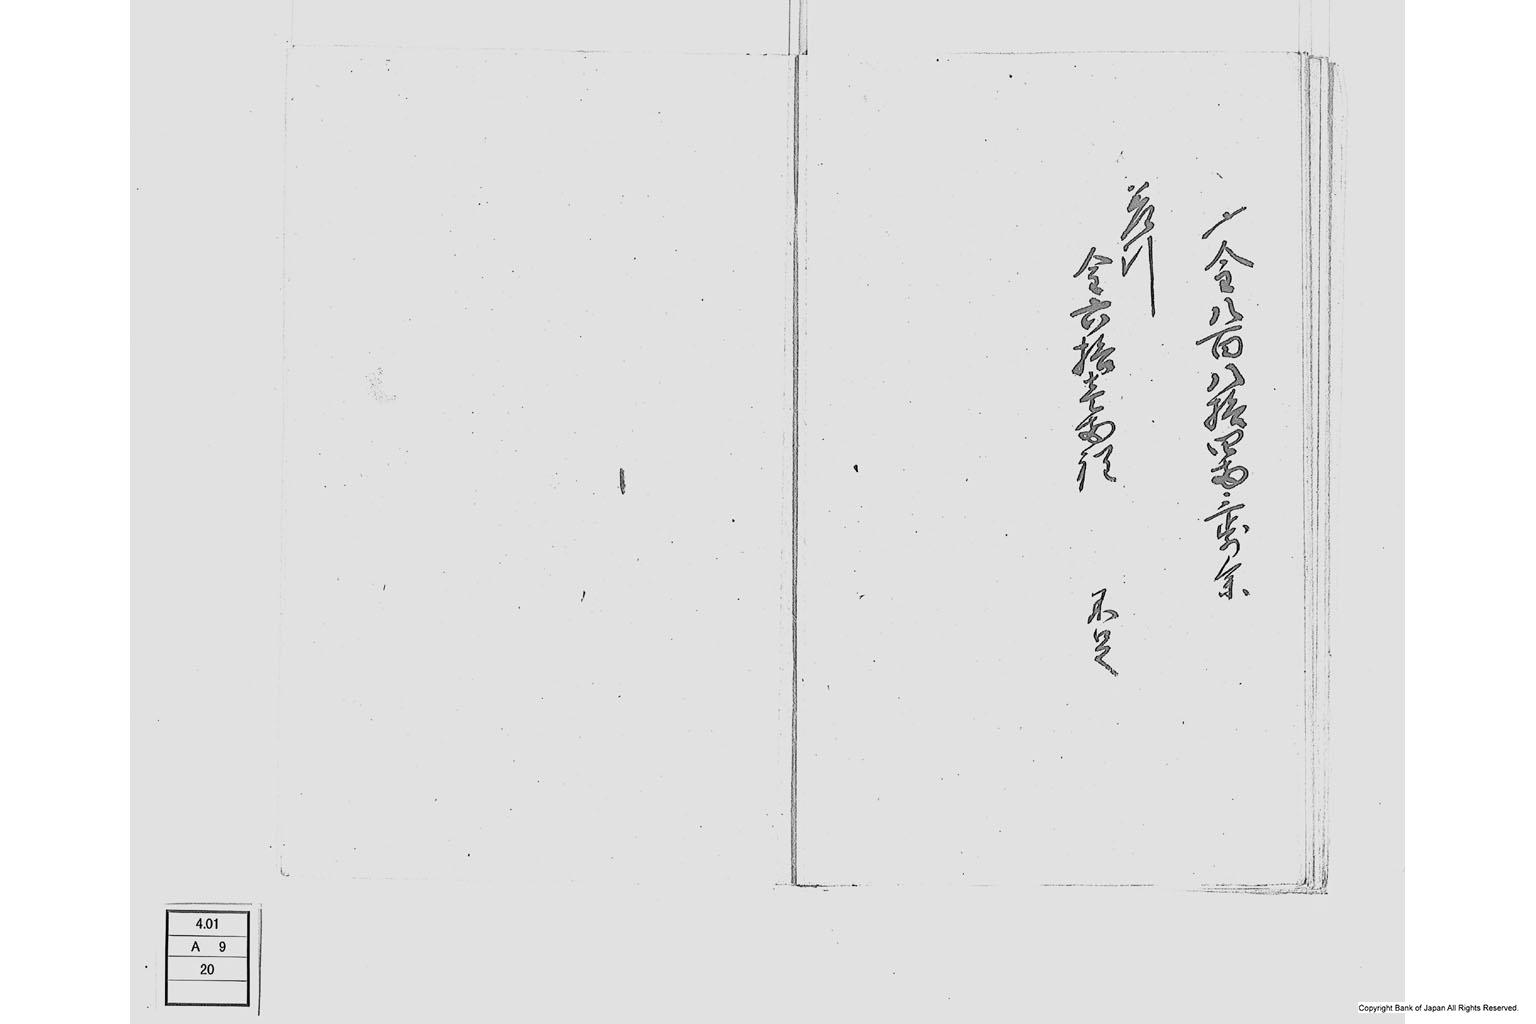 金八百八拾四両三歩余
差引
金六拾壱両程 不足
4.01
A 9
20
Copyright Bank of Japan All Rights Reserved.